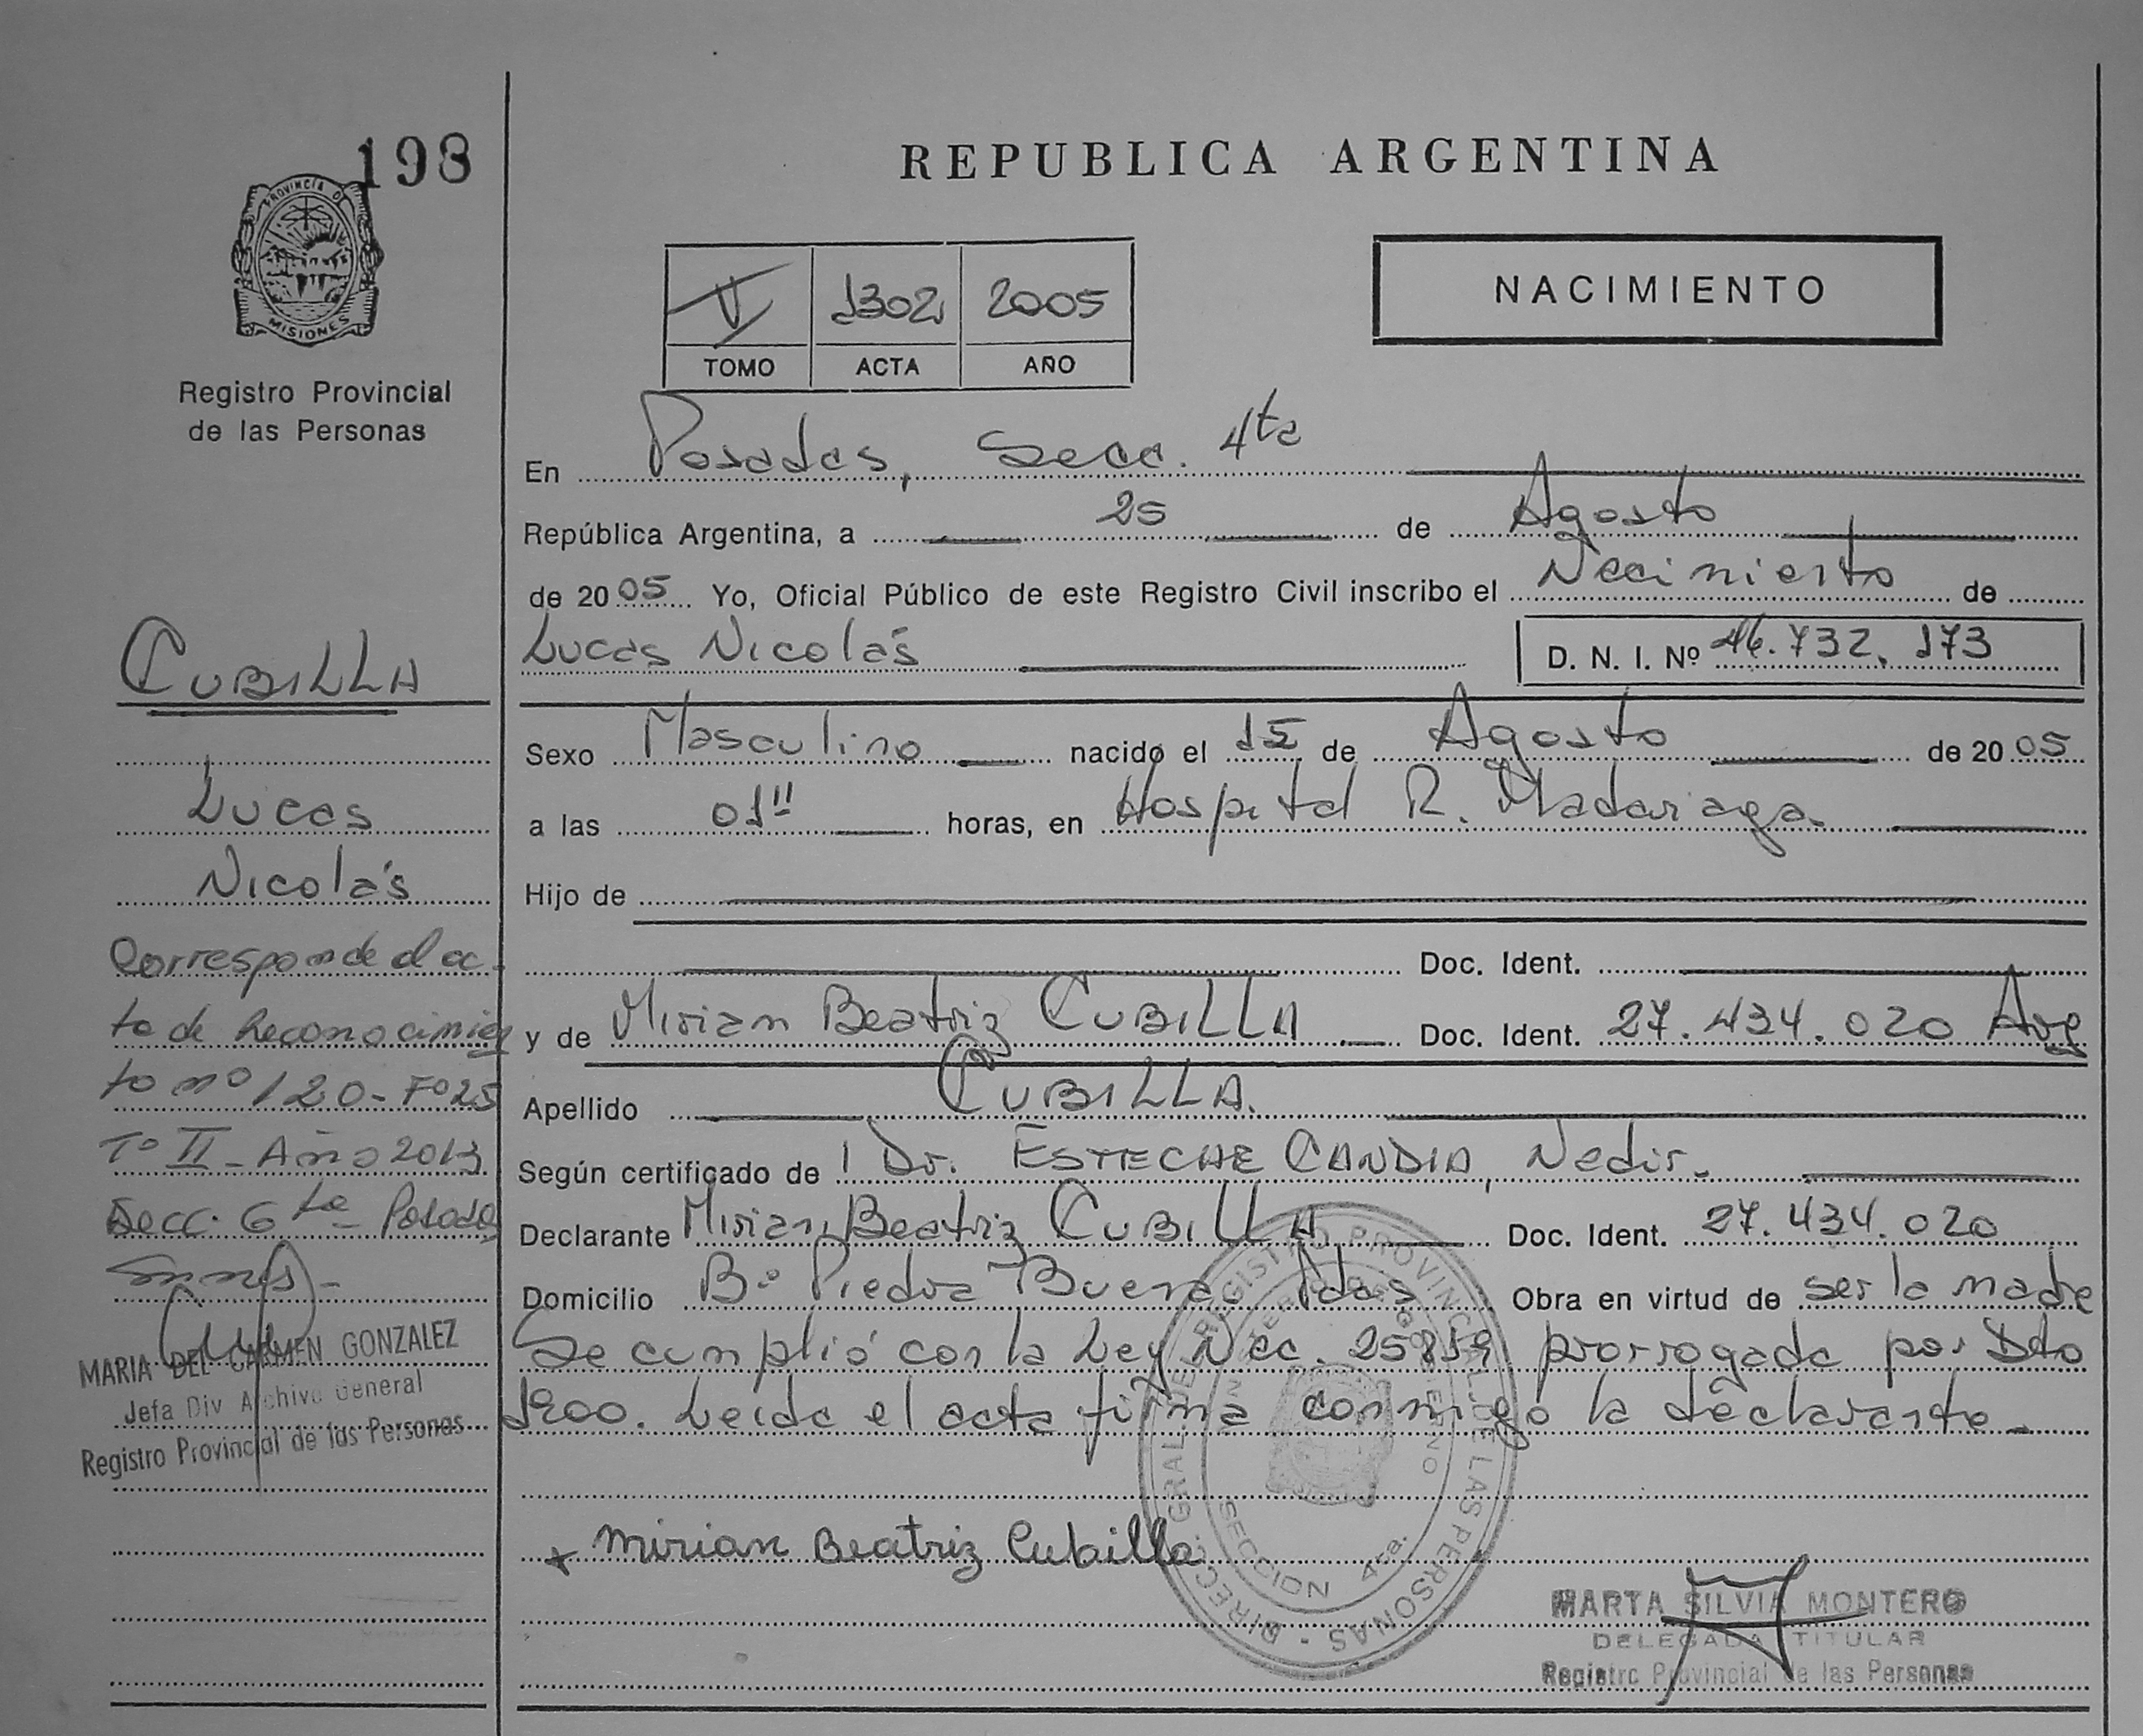 198
PROVINCIA DE
MISIONES
Registro Provincial
de las Personas
REPUBLICA ARGENTINA
V 1302 2005
TOMO ACTA AÑO
NACIMIENTO
En Posadas, Secc. 4ta
República Argentina, a 25 de Agosto
de 2005 Yo, Oficial Público de este Registro Civil inscribo el Nacimiento de
Lucas Nicolás D. N. I. Nº 46.732.173
Sexo Masculino nacido el 15 de Agosto de 2005
a las 01 horas, en Hospital R. Madariaga.
Hijo de
Doc. Ident.
y de Mirian Beatriz CUBILLA Doc. Ident. 27.434.020 Arg
Apellido CUBILLA.
Según certificado de Dr. ESTECHE CANDIA, Nedir.
Declarante Mirian Beatriz CUBILLA Doc. Ident. 27.434.020
Domicilio Bº Piedra Buena Pdas Obra en virtud de ser la madre
Se cumplió con la Ley Nac. 25819 prorrogada por Dto
1200. Leída el acta firma conmigo la declarante
x Mirian Beatriz Cubilla
DIRECC. GRAL. DE REGISTRO PROVINCIAL DE LAS PERSONAS
SECCION 4ta.
MARTA SILVIA MONTERO
DELEGADA TITULAR
Registro Provincial de las Personas
CUBILLA
Lucas
Nicolás
Corresponde al ac
ta de Reconocimien
to nº 120-Fº25
Tº II - Año 2013
Secc. 6ta Posadas
MARIA DEL CARMEN GONZALEZ
Jefa Div Archivo General
Registro Provincial de las Personas